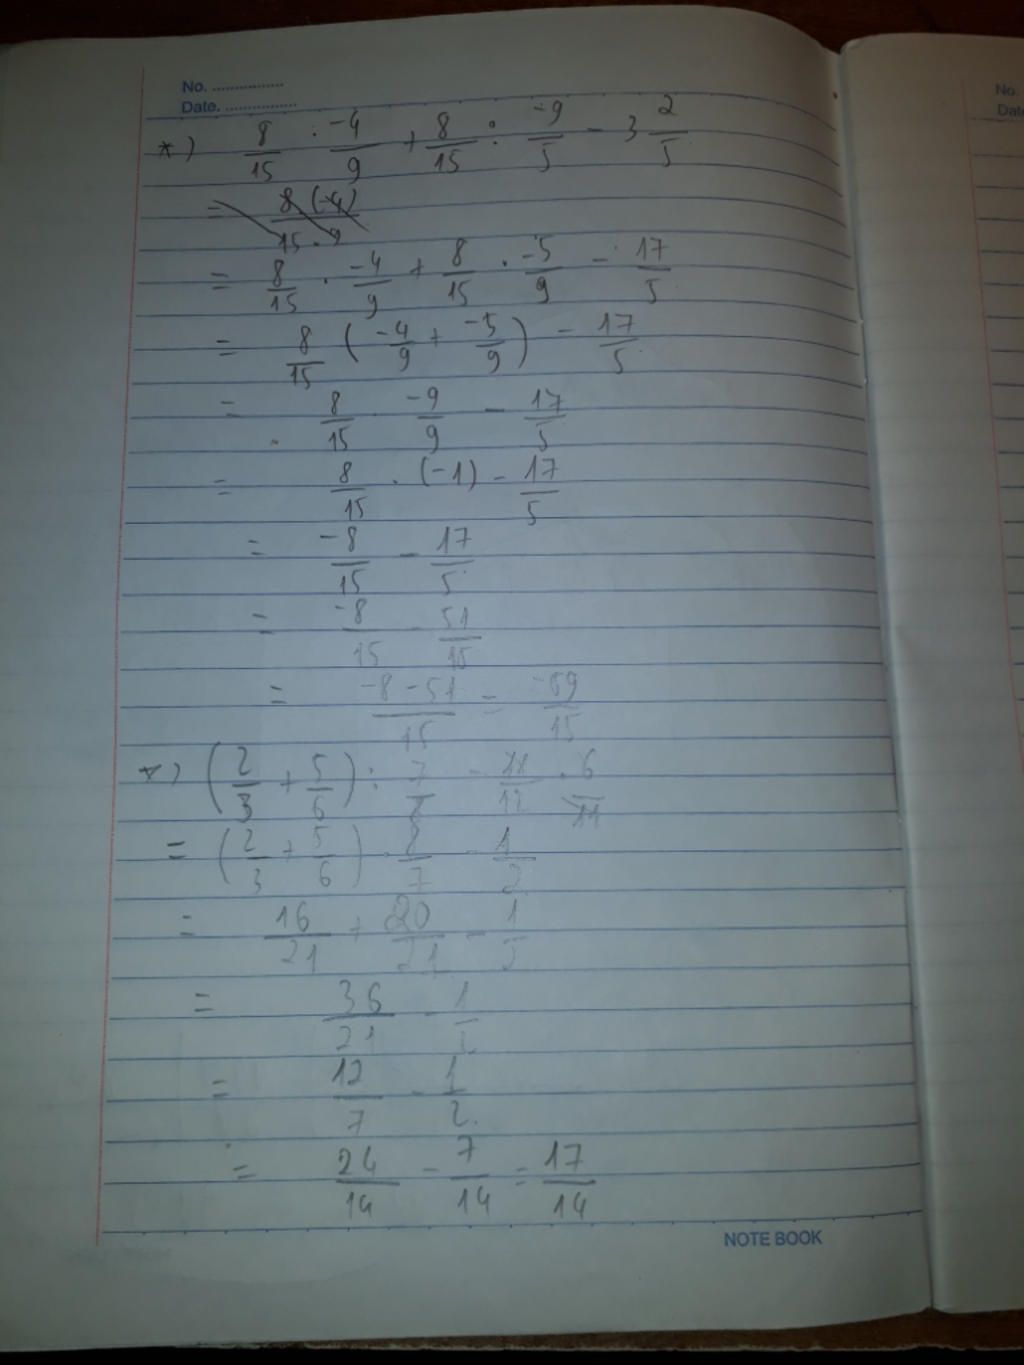 No. ................
Date. ...............
*) 8/15 . -4/9 + 8/15 : -9/5 - 3 2/5
= 8 (-4)/15 . 9
= 8/15 . -4/9 + 8/15 . -5/9 - 17/5
= 8/15 ( -4/9 + -5/9 ) - 17/5
= 8/15 . -9/9 - 17/5
= 8/15 . (-1) - 17/5
= -8/15 - 17/5
= -8/15 - 51/15
= -8-51/15 = -59/15
*) ( 2/3 + 5/6 ) : 7/8 - 11/12 . 6/11
= ( 2/3 + 5/6 ) . 8/7 - 1/2
= 16/21 + 20/21 - 1/2
= 36/21 - 1/2
= 12/7 - 1/2
= 24/14 - 7/14 = 17/14
NOTE BOOK
No.
Dat